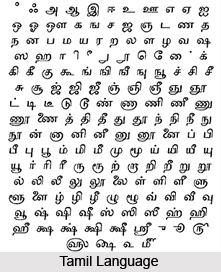 ஃ அ ஆ இ ஈ உ ஊ எ ஏ ஐ
ஒ ஓ ஔ க ங ச ஜ ஞ ட ண த
ந ன ப ம ய ர ற ல ள ழ வ ஷ
ஸ ஹ ா ி ீ ெ ே ை க்
கி கீ கு கூ ங் ஙி ஙீ ஙு ஙூ ச் சி சீ
சு சூ ஜ் ஜி ஜீ ஞ் ஞி ஞீ ஞு ஞூ
ட் டி டீ டு டூ ண் ணி ணீ ணு
ணூ ணை த் தி தீ து தூ ந் நி நீ நு
நூ ன் னி னீ னு னூ னை ப் பி
பீ பு பூ ம் மி மீ மு மூ ய் யி யீ யு
யூ ர் ரி ரீ ரு ரூ ற் றி றீ று றூ
ல் லி லீ லு லூ லை ள் ளி ளீ ளு
ளூ ளை ழ் ழி ழீ ழு ழூ வ் வி வீ வு
வூ ஷ் ஷி ஷீ ஸ் ஸி ஸீ ஹ் ஹி
ஹீ க்ஷ க்ஷ் க்ஷி க்ஷீ ஸ்ரீ
Tamil Language